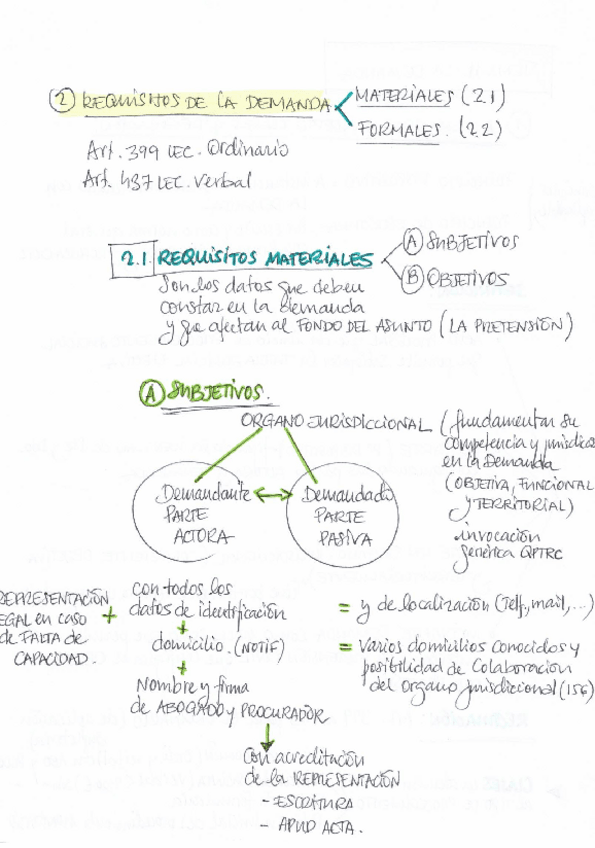 ② REQUISITOS DE LA DEMANDA
MATERIALES (2.1)
FORMALES. (2.2)
Art. 399 LEC. Ordinario
Art. 437 LEC. Verbal
2.1. REQUISITOS MATERIALES
Ⓐ SUBJETIVOS
Ⓑ OBJETIVOS
Son los datos que deben
constar en la demanda
y que afectan al FONDO DEL ASUNTO (LA PRETENSIÓN)
Ⓐ SUBJETIVOS.
ORGANO JURISDICCIONAL (fundamentar su
competencia y jurisdicc
en la Demanda
(OBJETIVA, FUNCIONAL
y TERRITORIAL)
invocación
genérica QPTRC
Demandante
PARTE
ACTORA
Demandado
PARTE
PASIVA
REPRESENTACIÓN
EGAL en caso
de FALTA de
CAPACIDAD.
+
con todos los
datos de identificación
= y de localización (Telf, mail, ...)
+
domicilio. (NOTIF)
= Varios domicilios conocidos y
posibilidad de Colaboración
del Organo jurisdiccional (156)
+
Nombre y firma
de ABOGADO y PROCURADOR
Con acreditación
de la REPRESENTACIÓN
- ESCRITURA
- APUD ACTA.